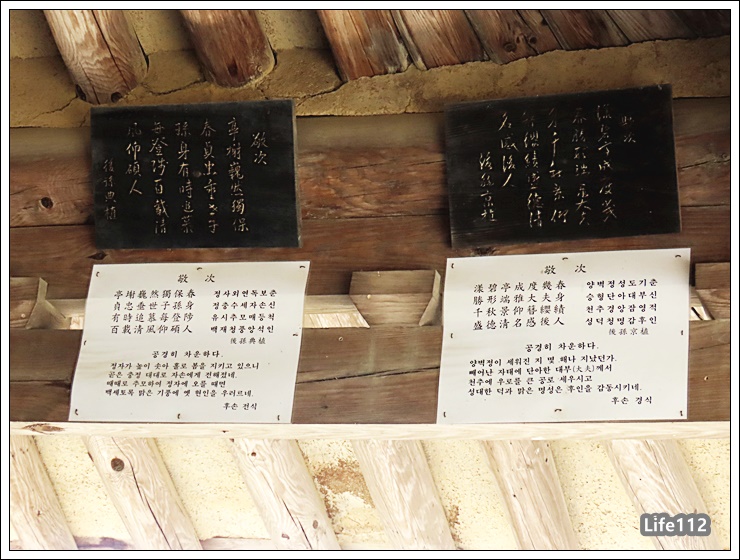 敬次
亭榭巍然獨保
春貞忠垂世子
孫身有時追慕
每登陟百載清
風仰碩人
後孫典植
敬次
漾碧亭成度幾
春勝形端雅大夫
身千秋景仰
簪纓績盛德清
名感後人
後孫京植
敬 次
亭榭巍然獨保春 정사외연독보춘
貞忠垂世子孫身 정충수세자손신
有時追慕每登陟 유시추모매등척
百載清風仰碩人 백재청풍앙석인
後孫典植
공경히 차운하다.
정자가 높이 솟아 홀로 봄을 지키고 있으니
곧은 충정 대대로 자손에게 전해졌네.
때때로 추모하여 정자에 오를 때면
백세토록 맑은 기풍에 옛 현인을 우러르네.
후손 전식
敬 次
漾碧亭成度幾春 양벽정성도기춘
勝形端雅大夫身 승형단아대부신
千秋景仰簪纓績 천추경앙잠영적
盛德清名感後人 성덕청명감후인
後孫京植
공경히 차운하다.
양벽정이 세워진 지 몇 해나 지났던가.
빼어난 자태에 단아한 대부(大夫)께서
천추에 우로를 큰 공로 세우시고
성대한 덕과 맑은 명성은 후인을 감동시키네.
후손 경식
Life112